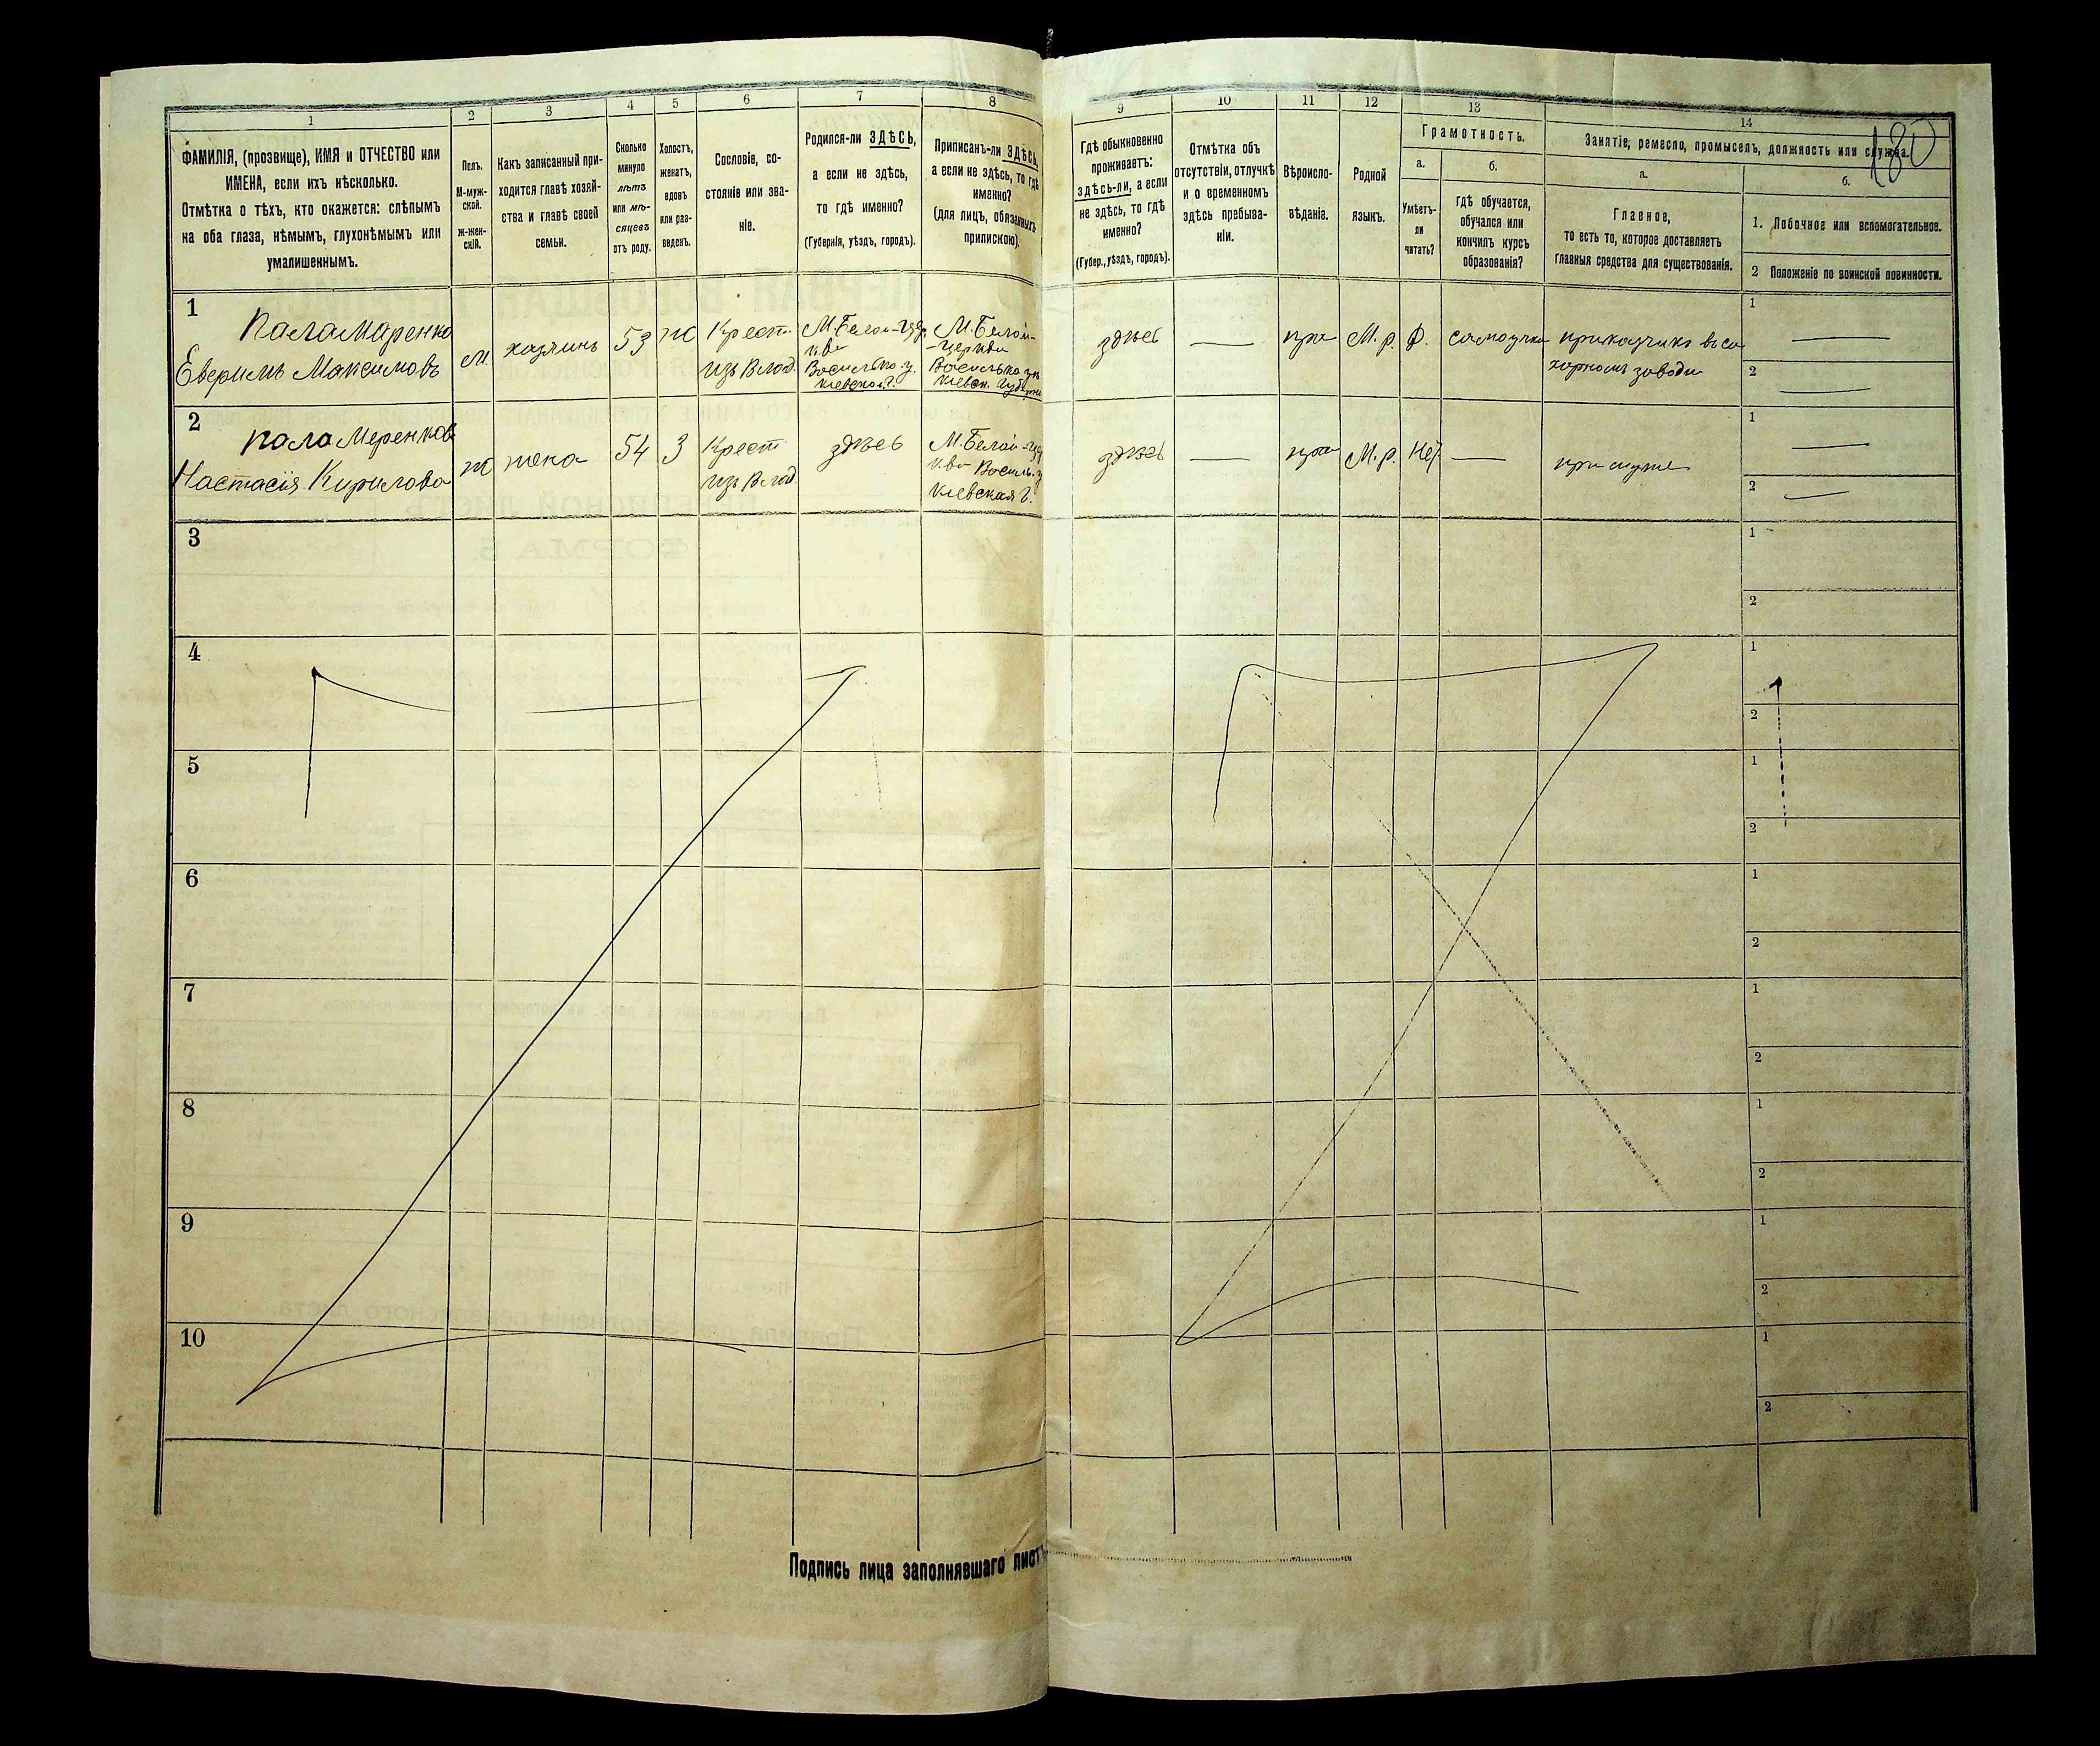 180
1
ФАМИЛІЯ, (прозвище), ИМЯ и ОТЧЕСТВО или
ИМЕНА, если ихъ нѣсколько.
Отмѣтка о тѣхъ, кто окажется: слѣпымъ
на оба глаза, нѣмымъ, глухонѣмымъ или
умалишеннымъ.
2
Полъ.
М-муж-
ской.
ж-жен-
скій.
3
Какъ записанный при-
ходится главѣ хозяй-
ства и главѣ своей
семьи.
4
Сколько
минуло
лѣтъ
или мѣ-
сяцевъ
отъ роду.
5
Холостъ,
женатъ,
вдовъ
или раз-
веденъ.
6
Сословіе, со-
стояніе или зва-
ніе.
7
Родился-ли ЗДѢСЬ,
а если не здѣсь,
то гдѣ именно?
(Губернія, уѣздъ, городъ).
8
Приписанъ-ли ЗДѢСЬ,
а если не здѣсь, то гдѣ
именно?
(для лицъ, обязанныхъ
припискою).
9
Гдѣ обыкновенно
проживаетъ:
здѣсь-ли, а если
не здѣсь, то гдѣ
именно?
(Губер., уѣздъ, городъ).
10
Отмѣтка объ
отсутствіи, отлучкѣ
и о временномъ
здѣсь пребыва-
ніи.
11
Вѣроиспо-
вѣданіе.
12
Родной
языкъ.
13
Грамотность.
а.
Умѣетъ-
ли
читать?
б.
гдѣ обучается,
обучался или
кончилъ курсъ
образованія?
14
Занятіе, ремесло, промыселъ, должность или служба.
а.
Главное,
то есть то, которое доставляетъ
главныя средства для существованія.
б.
1. Побочное или вспомогательное.
2 Положеніе по воинской повинности.
1
Паламаренко
Максимовъ
М.
хазяинъ
53
ж
Крест.
изъ Влад.
М. Белой-Цер
кви
Василько. у.
Киевской Г.
М. Белой-
-Церкви
здѣсь
—
пра
М. р.
самоучка
заводи
1 —
2 —
2
Паламеренкова
Настасія Кирилова
ж
жена
54
З
Крест
изъ Влад.
здѣсь
М. Белой-Цер
кви Василь. у
Киевская Г.
здѣсь
—
пра
М. р.
Нет
—
при муже
1 —
2 —
3
1
2
4
1
2
5
1
2
6
1
2
7
1
2
8
1
2
9
1
2
10
1
2
Подпись лица заполнявшаго листъ